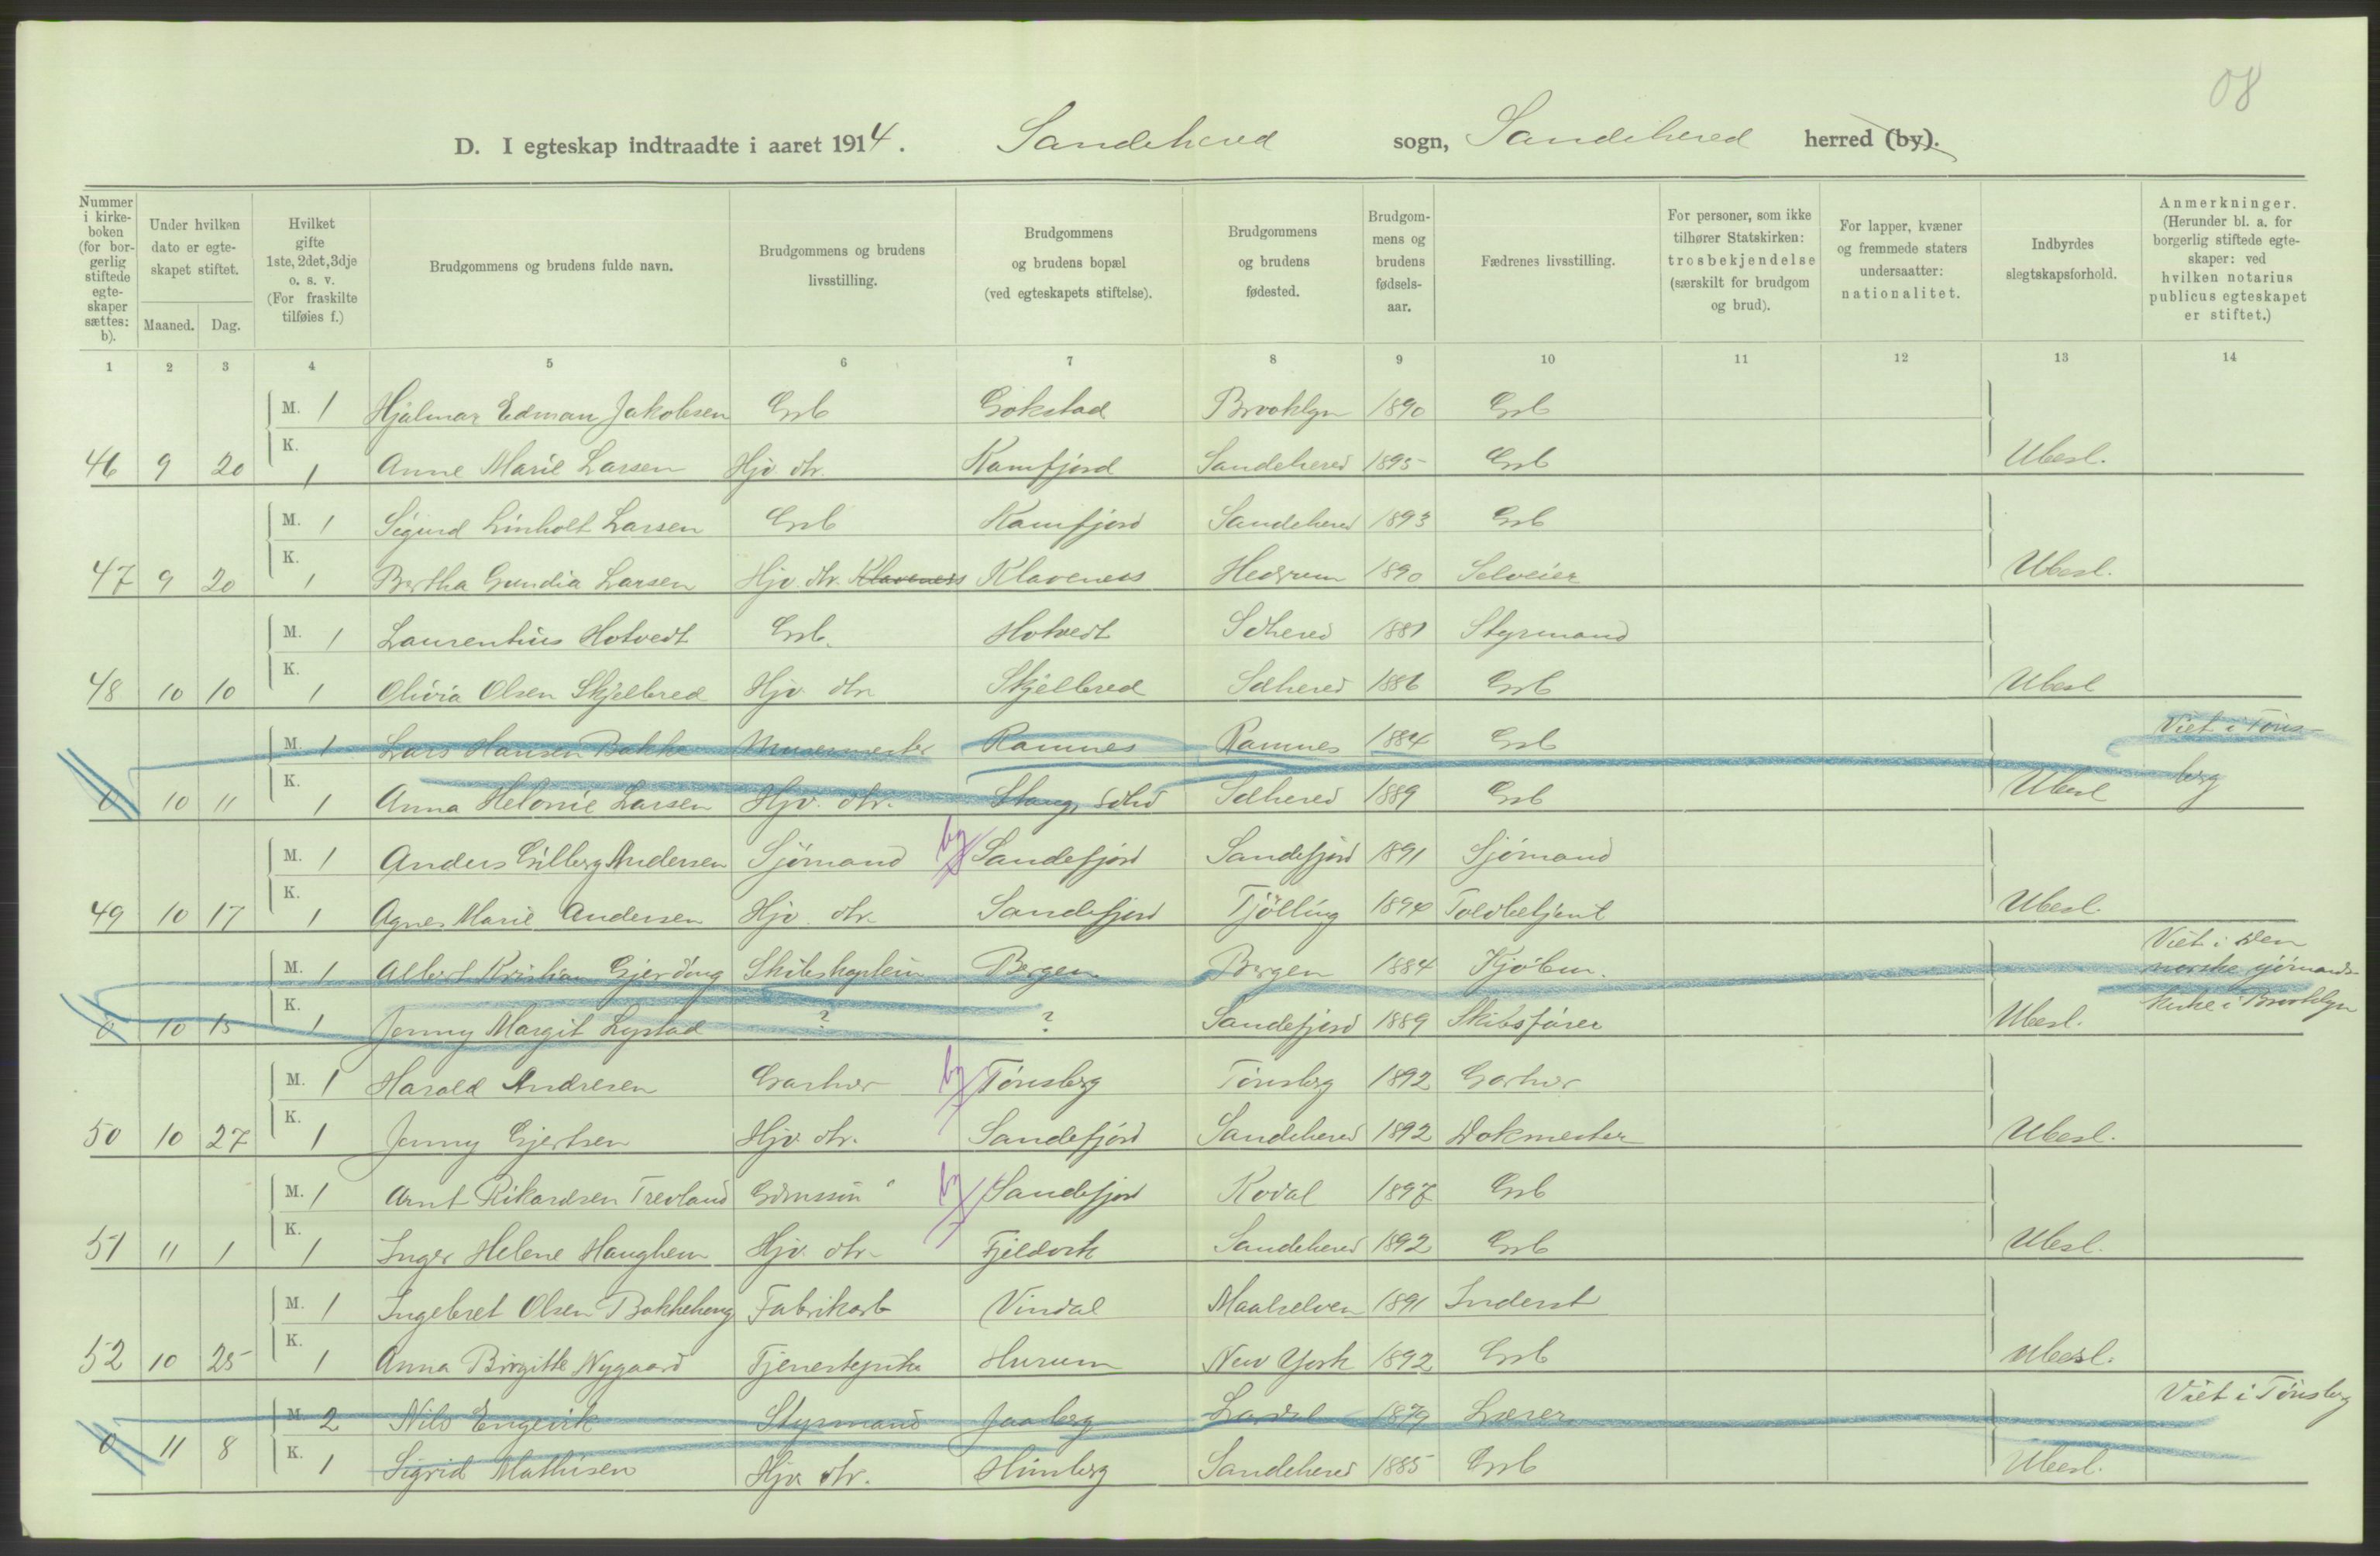 08
D. I egteskap indtraadte i aaret 1914. Sandehered sogn, Sandehered herred (by).
Nummer i kirkeboken (for borgerlig stiftede egteskaper sættes: b).
Under hvilken dato er egteskapet stiftet.
Maaned. Dag.
Hvilket gifte 1ste, 2det, 3dje o. s. v. (For fraskilte tilføies f.)
Brudgommens og brudens fulde navn.
Brudgommens og brudens livsstilling.
Brudgommens og brudens bopæl (ved egteskapets stiftelse).
Brudgommens og brudens fødested.
Brudgommens og brudens fødselsaar.
Fædrenes livsstilling.
For personer, som ikke tilhører Statskirken: trosbekjendelse (særskilt for brudgom og brud).
For lapper, kvæner og fremmede staters undersaatter: nationalitet.
Indbyrdes slegtskapsforhold.
Anmerkninger. (Herunder bl. a. for borgerlig stiftede egteskaper: ved hvilken notarius publicus egteskapet er stiftet.)
1 2 3 4 5 6 7 8 9 10 11 12 13 14
M. 1 Hjalmar Edman Jakobsen Grb Gokstad Brooklyn 1890 Grb
46 9 20 K. 1 Anne Marie Larsen Hjv. dtr. Kamfjord Sandehered 1895 Grb Ubesl.
M. 1 Sigurd Linholt Larsen Grb Kamfjord Sandehered 1893 Grb
47 9 20 K. 1 Bertha Gundia Larsen Hjv. dtr. Klavenes Klavenes Hedrum 1890 Selveier Ubesl.
M. 1 Laurentius Hotvedt Grb. Hotvedt Sdhered 1881 Styrmand
48 10 10 K. 1 Olivia Olsen Skjelbred Hjv. dtr Skjelbred Sdhered 1886 Grb Ubesl
M. 1 Lars Hansen Bakke Murermester Ramnes Ramnes 1884 Grb Viet i Tøns-
0 10 11 K. 1 Anna Helonie Larsen Hjv. dtr. Stang, Sdhd Sdhered 1889 Grb Ubesl berg
M. 1 Anders Gilberg Andersen Sjömand by Sandefjord Sandefjord 1891 Sjömand
49 10 17 K. 1 Agnes Marie Andersen Hjv. dtr Sandefjord Tjölling 1894 Toldbetjent Ubesl.
Viet i den
M. 1 Albert Kristian Gjerding Skibskaptein Bergen Bergen 1884 Kjöbm. norske sjömands-
0 10 15 K. 1 Jenny Margit Lystad ? ? Sandefjord 1889 Skibsfører Ubesl. kirke i Brooklyn
M. 1 Harald Andresen Garver by Tönsberg Tönsberg 1892 Garver
50 10 27 K. 1 Jenny Gjertsen Hjv. dtr. Sandefjord Sandehered 1892 Dokmester Ubesl.
M. 1 Arnt Rikardsen Trevland by Sandefjord Kodal 1897 Grb
51 11 1 K. 1 Inger Helene Haughem Hjv. dtr Fjeldvik Sandehered 1892 Grb Ubesl.
M. 1 Ingebret Olsen Bakkehaug Fabrikarb Vindal Maalselven 1891 Inderst
52 10 25 K. 1 Anna Birgitte Nygaard Tjenestepike Hurum New York 1892 Grb Ubesl.
M. 2 Nils Engevik Styrmand Jaaberg Lardal 1879 Lærer Viet i Tönsberg
0 11 8 K. 1 Sigrid Mathisen Hjv. dtr. Himberg Sandehered 1885 Grb Ubesl.